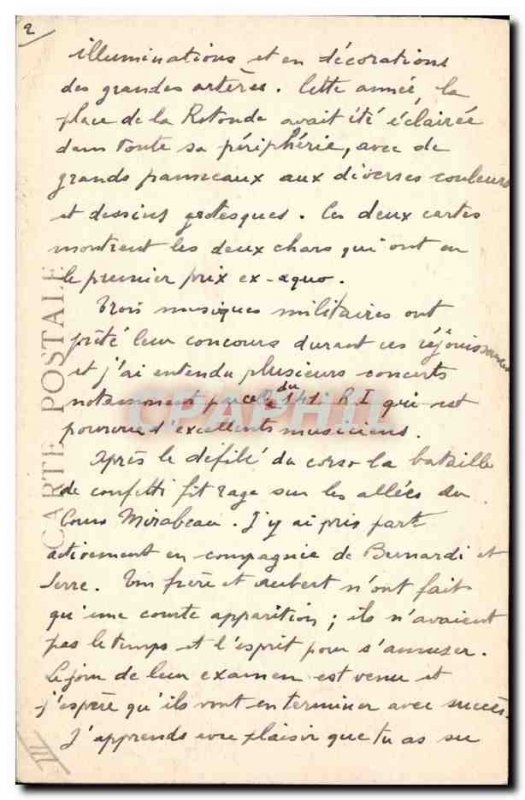 2
illuminations et en décorations
des grandes artères. Cette année, la
place de la Rotonde avait été éclairée
dans toute sa périphérie, avec de
grands panneaux aux diverses couleurs
et dessins grotesques. Les deux cartes
montrent les deux chars qui ont eu
le premier prix ex-aquo.
Trois musiques militaires ont
prêté leur concours durant ces réjouissances
et j'ai entendu plusieurs concerts
notamment par celle du R I qui est
pourvue d'excellents musiciens.
Après le défilé du corso la bataille
de confetti fit rage sur les allées du
Cours Mirabeau. J'y ai pris part
activement en compagnie de Bernardi et
Serre. Ton frère et Aubert n'ont fait
qu'une courte apparition ; ils n'avaient
pas le temps et l'esprit pour s'amuser.
Le jour de leur examen est venu et
j'espère qu'ils vont en terminer avec succès.
J'apprends avec plaisir que tu as su
CARTE POSTALE
CPAPHIL